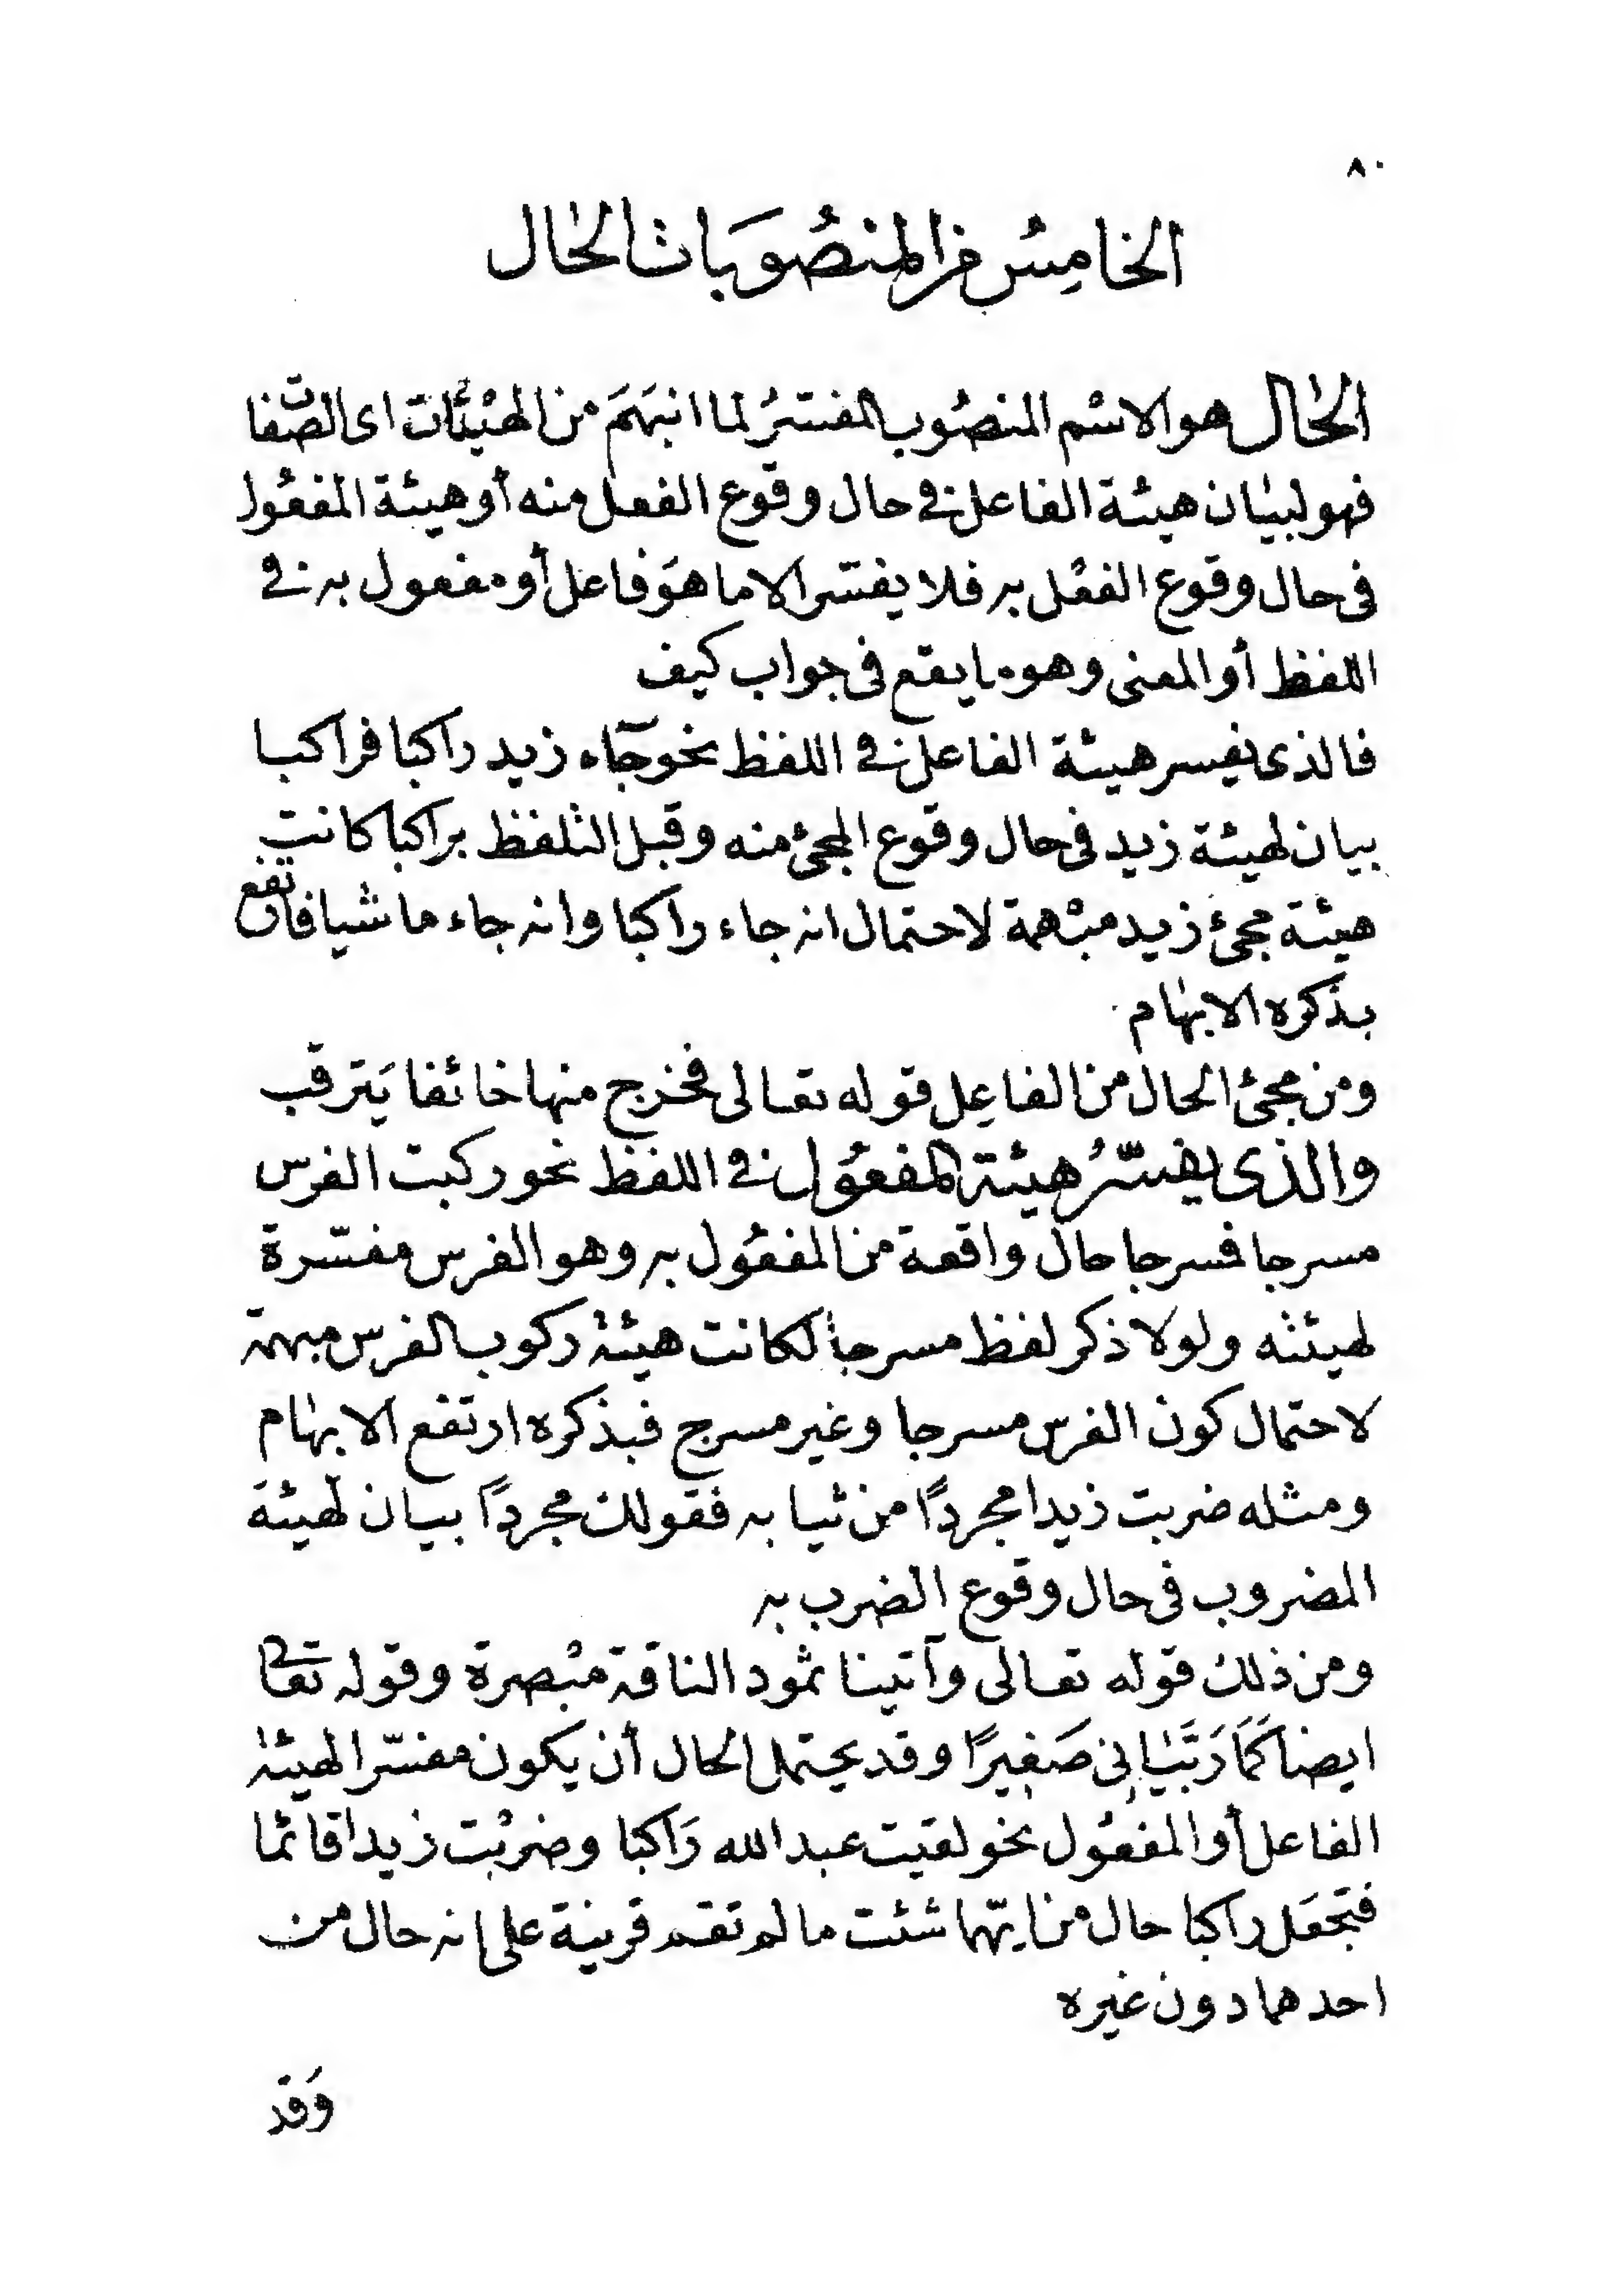 ٨٠
الخامِسُ من المنصُوبَات الحال
الحال هو الاسْم المنصُوب المفسّرُ لما انبَهَمَ من الهيْئَات اى الصّفات
فهو لبيان هيئة الفاعل فى حال وقوع الفعل منه أو هيئة المفعُول
فى حال وقوع الفعْل به فلا يفسّر الا ما هوَ فاعل أو مفعول به فى
اللفظ أو المعنى وهو ما يقع فى جواب كيف
فالذى يفسر هيئة الفاعل فى اللفظ نحو جآء زيد راكبا فراكبا
بيان لهيئة زيد فى حال وقوع المجئ منه وقبل التلفظ براكبا كانت
هيئة مجئ زيد مبْهمة لاحتمال انه جاء راكبا وانه جاء ماشيا فارتفع
بذكره الابهام
ومن مجئ الحال من الفاعِل قوله تعالى فخرج منها خائفا يَترقب
والذى يفسّرُ هيئة المفعُول فى اللفظ نحو ركبت الفرس
مسرجا فمسرجا حال واقعة من المفعُول به وهو الفرس مفسّرة
لهيئته ولولا ذكر لفظ مسرجاً لكانت هيئة ركوب الفرس مبهمة
لاحتمال كون الفرس مسرجا وغير مسرج فبذكره ارتفع الابهام
ومثله ضربت زيدا مجردًا من ثيابه فقولك مجردًا بيان لهيئة
المضروب فى حال وقوع الضرب به
ومن ذلك قوله تعالى وآتينا ثمود الناقة مبْصرة وقوله تعالى
ايضا كَمَا رَبَّيَانِى صَغِيرًا وقد يحتمل الحال أن يكون مفسّرا لهيئة
الفاعل أو المفعُول نحو لقيت عبد الله رَاكبا وضربْت زيدا قائما
فتجعَل راكبا حال من ايّهما شئت ما لم تقم قرينة على انه حال من
احدهما دون غيره
وَقد